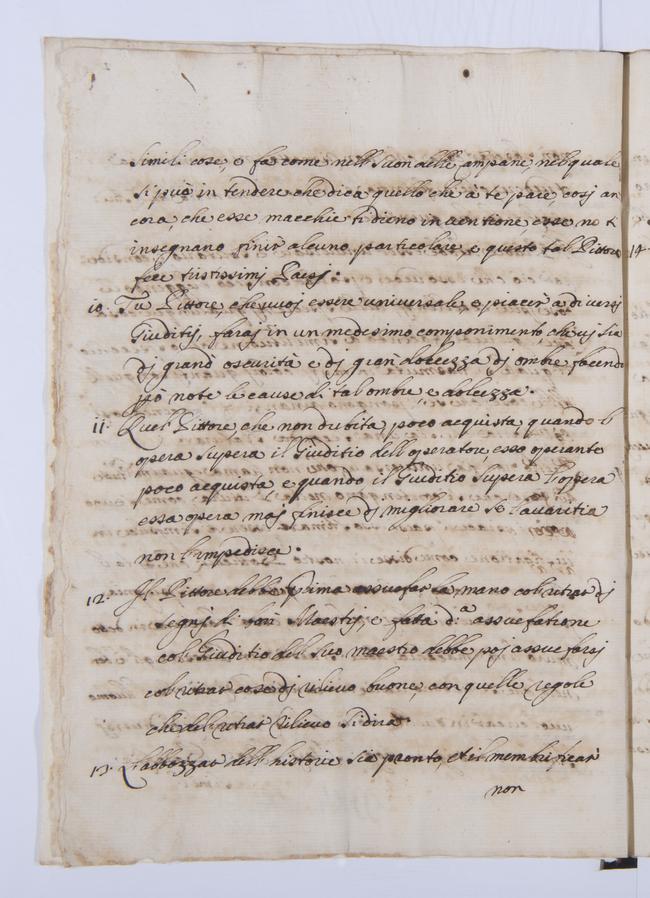 simili cose, e fa come nell suon delle campane, nel quale
si può in tendere che dica quello che a te pare, cosj an
cora, che esse macchie ti dieno inuentione esse no ti
insegnano finir alcuno particolare, e questo tal Pittore
fece tristissimj Paesj.
10. Tu Pittore, che uuoj essere uniuersale, e piacer a diuersj
Giuditij, faraj in un medesimo componimento, che uj sia
dj grand oscurità e dj gran dolcezza dj ombre facendo
però note le cause di tal ombre e dolcezza.
11. Quel Pittore, che non dubita, poco acquista, quando l
opera supera il Giuditio dell operatore, esso operante
poco acquista, e quando il Giuditio supera l opera
essa opera maj finisce dj migliorare se l auaritia
non l impedisce.
12. Jl Pittore debbe prima assuefar la mano col ritrar dj
segnj di bonj Maestrj, e fata d.ª assuefatione
col Giuditio del suo maestro debbe poj assuefarsj
col ritrar cose dj rilieuo buone, con quelle regole
che del ritrar rilieuo si dira
13. L abbozzar dell historie sia pronto, et il membrificar
non
14